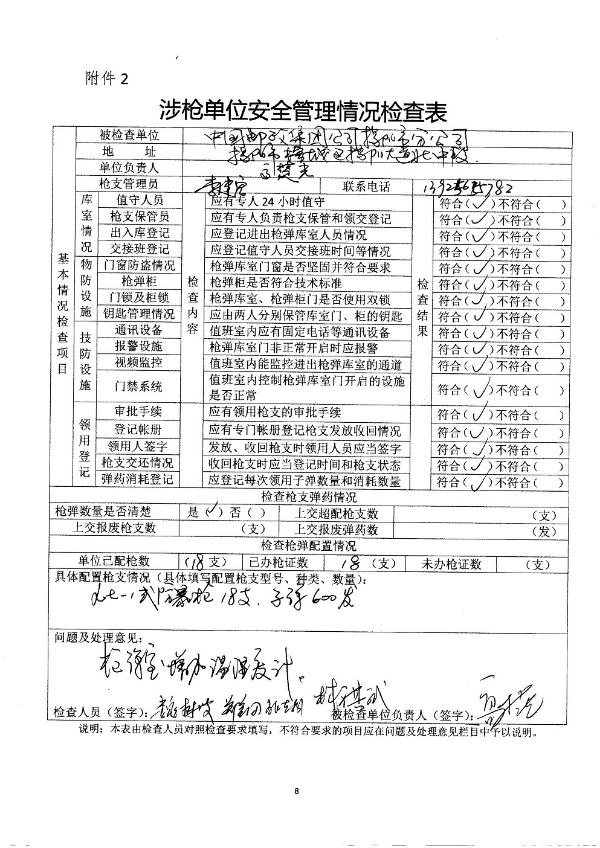 附件 2
涉枪单位安全管理情况检查表
被检查单位 中国邮政集团公司揭阳市分公司
地 址
单位负责人
枪支管理员 联系电话
基本情况检查项目
库室情况
检查内容
检查结果
值守人员 应有专人 24 小时值守 符合(✓)不符合( )
枪支保管员 应有专人负责枪支保管和领交登记 符合(✓)不符合( )
出入库登记 应登记进出枪弹库室人员情况 符合(✓)不符合( )
交接班登记 应登记值守人员交接班时间等情况 符合(✓)不符合( )
物防设施
门窗防盗情况 枪弹库室门窗是否坚固并符合要求 符合(✓)不符合( )
枪弹柜 枪弹柜是否符合技术标准 符合(✓)不符合( )
门锁及柜锁 枪弹库室、枪弹柜门是否使用双锁 符合(✓)不符合( )
钥匙管理情况 应由两人分别保管库室门、柜的钥匙 符合(✓)不符合( )
技防设施
通讯设备 值班室内应有固定电话等通讯设备 符合(✓)不符合( )
报警设施 枪弹库室门非正常开启时应报警 符合(✓)不符合( )
视频监控 值班室内能监控进出枪弹库室的通道 符合(✓)不符合( )
门禁系统 值班室内控制枪弹库室门开启的设施
是否正常 符合(✓)不符合( )
领用登记
审批手续 应有领用枪支的审批手续 符合(✓)不符合( )
登记帐册 应有专门帐册登记枪支发放收回情况 符合(✓)不符合( )
领用人签字 发放、收回枪支时领用人员应当签字 符合(✓)不符合( )
枪支交还情况 收回枪支时应当登记时间和枪支状态 符合(✓)不符合( )
弹药消耗登记 应登记每次领用子弹数量和消耗数量 符合(✓)不符合( )
检查枪支弹药情况
枪弹数量是否清楚 是(✓)否( ) 上交超配枪支数 (支)
上交报废枪支数 (支) 上交报废弹药数 (发)
检查枪弹配置情况
单位已配枪数 (18支) 已办枪证数 18 (支) 未办枪证数 (支)
具体配置枪支情况（具体填写配置枪支型号、种类、数量）：
九七一式防暴枪 18支、子弹600发
问题及处理意见：
枪弹室增加温湿度计。
检查人员（签字）： 被检查单位负责人（签字）：
说明：本表由检查人员对照检查要求填写，不符合要求的项目应在问题及处理意见栏目中予以说明。
8